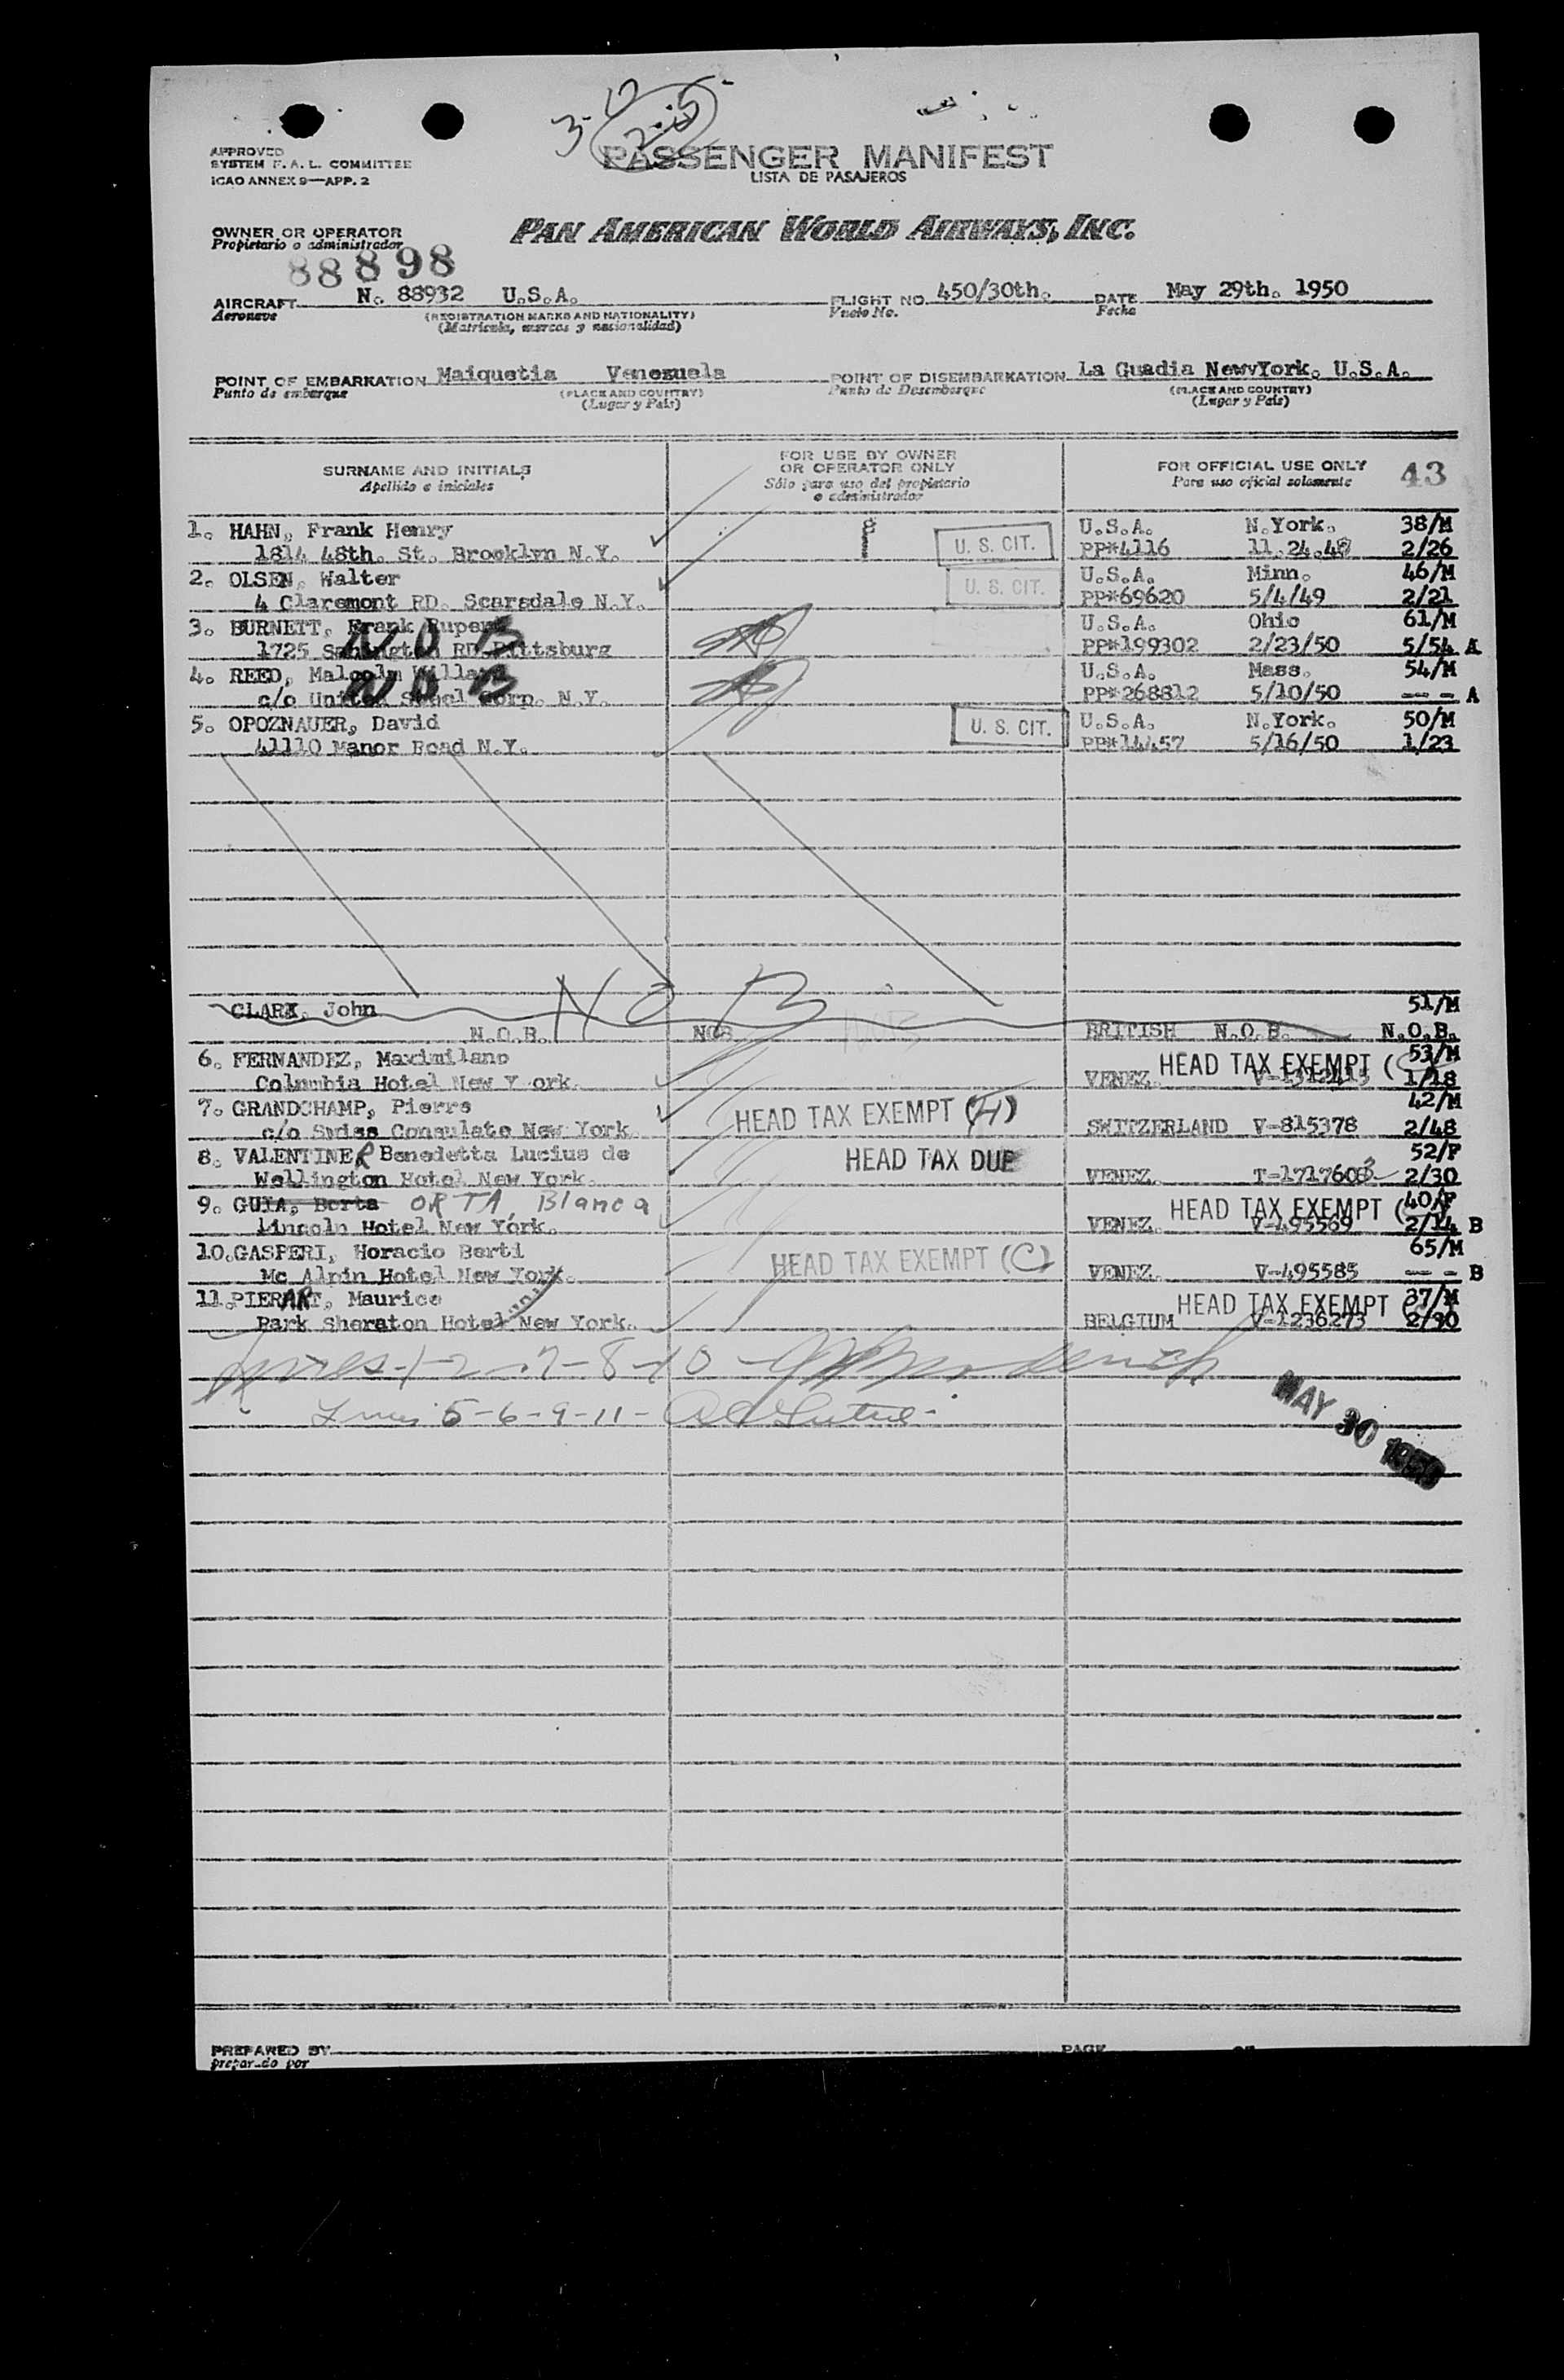 3-12
2-15
APPROVED
SYSTEM F. A. L. COMMITTEE
ICAO ANNEX 9—APP. 2
PASSENGER MANIFEST
LISTA DE PASAJEROS
OWNER OR OPERATOR
Propietario o administrador
PAN AMERICAN WORLD AIRWAYS, INC.
88898
AIRCRAFT N. 88932 U.S.A. FLIGHT NO. 450/30th. DATE May 29th. 1950
Aeronave (REGISTRATION MARKS AND NATIONALITY) Vuelo No. Fecha
(Matricula, marcas y nacionalidad)
POINT OF EMBARKATION Maiquetia Venezuela POINT OF DISEMBARKATION La Guadia NewvYork. U.S.A.
Punto de embarque (PLACE AND COUNTRY) Punto de Desembarque (PLACE AND COUNTRY)
(Lugar y País) (Lugar y País)
SURNAME AND INITIALS FOR USE BY OWNER OR OPERATOR ONLY FOR OFFICIAL USE ONLY 43
Apellido e iniciales Sólo para uso del propietario o administrador Para uso oficial solamente
1. HAHN, Frank Henry U.S.A. N.York. 38/M
1814 48th. St. Brooklyn N.Y. U. S. CIT. PP*4116 11.24.48 2/26
2. OLSEN, Walter U.S.A. Minn. 46/M
4 Claremont RD. Scarsdale N.Y. U. S. CIT. PP*69620 5/4/49 2/21
3. BURNETT, Frank Rupert N O B U.S.A. Ohio 61/M
1725 RD Pittsburg PP*199302 2/23/50 5/54 A
4. REED, Malcolm Willard N O B U.S.A. Mass. 54/M
c/o United Steel Corp. N.Y. PP*268812 5/10/50 --- - A
5. OPOZNAUER, David U. S. CIT. U.S.A. N.York. 50/M
41110 Manor Road N.Y. PP*14457 5/16/50 1/23
N O B
CLARK, John 51/M
N.O.B. NOB BRITISH N.O.B. N.O.B.
6. FERNANDEZ, Maximilano HEAD TAX EXEMPT ( 53/M
Columbia Hotel New Y ork. VENEZ. 1/18
7. GRANDCHAMP, Pierre HEAD TAX EXEMPT (H) 42/M
c/o Swiss Consulate New York. SWITZERLAND V-815378 2/48
8. VALENTINER Benedetta Lucius de HEAD TAX DUE 52/F
Wellington Hotel New York. VENEZ. T-1717603 2/30
9. GUIA, Berta ORTA, Blanca HEAD TAX EXEMPT ( 40/F
Lincoln Hotel New York. VENEZ. V-495569 2/14 B
10.GASPERI, Horacio Berti HEAD TAX EXEMPT (C) 65/M
Mc Alpin Hotel New York. VENEZ. V-495585 --- - B
11.PIERART, Maurice HEAD TAX EXEMPT ( 37/M
Park Sheraton Hotel New York. BELGIUM V-1236273 2/30
Lines-1-2-7-8-10-
Lines 5-6-9-11-
MAY 30 1950
PREPARED BY PAGE
preparado por